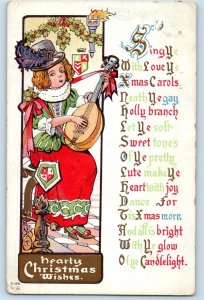 Sing Ye
With Love Ye
Xmas Carols
'Neath Ye gay
Holly branch
Let Ye soft
Sweet tones
Of Ye pretty
Lute make Ye
Heart with joy
Dance For
Tis Xmas morn
And all is bright
With Ye glow
Of Ye Candlelight.
Hearty
Christmas
Wishes.